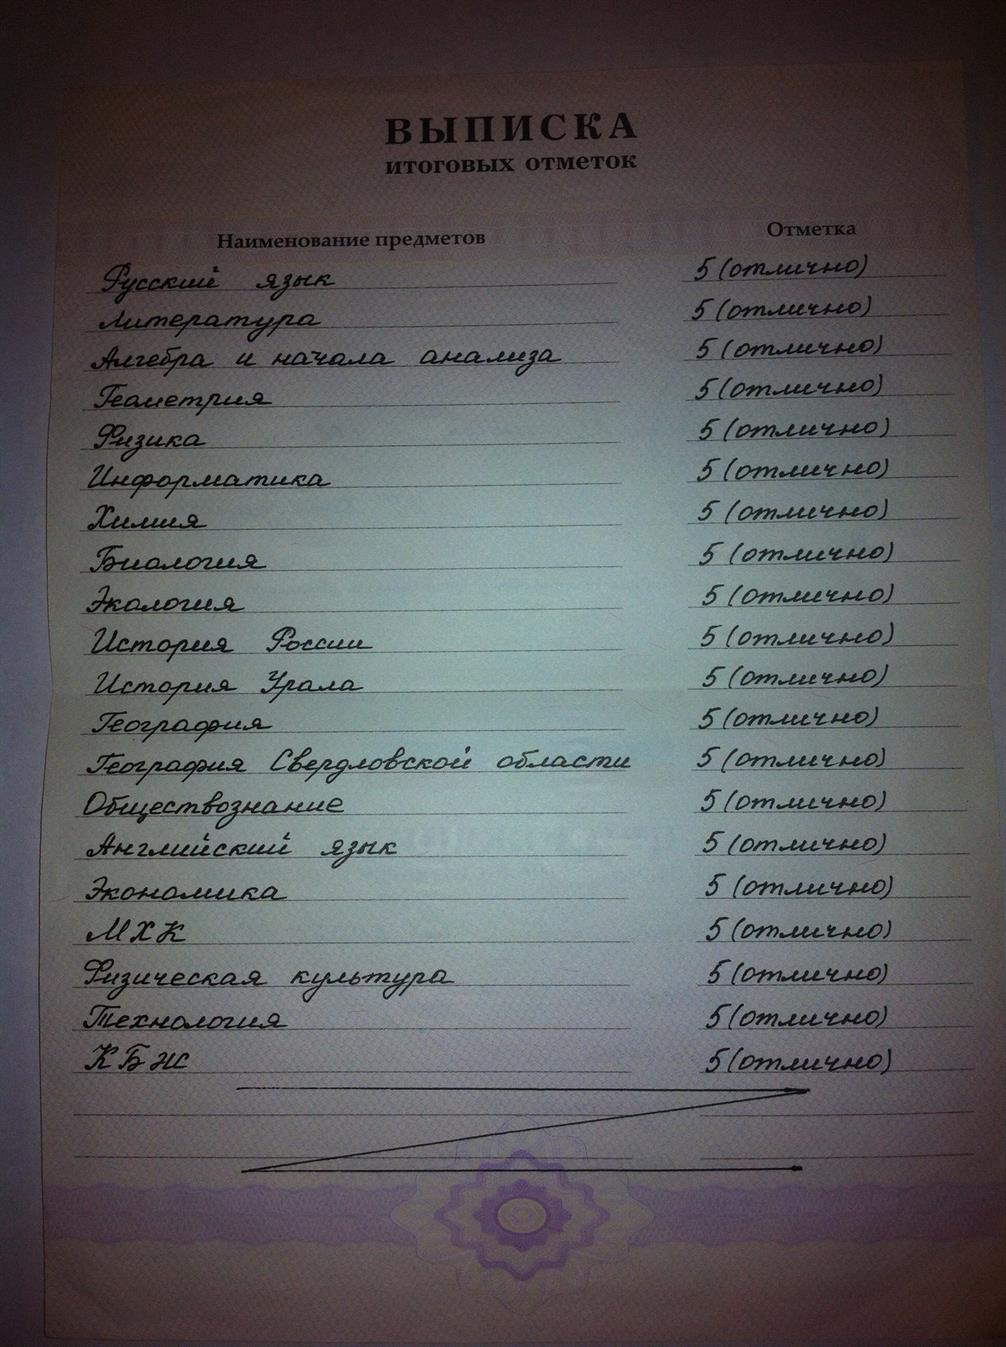 ВЫПИСКА
итоговых отметок
Наименование предметов Отметка
Русский язык 5 (отлично)
Литература 5 (отлично)
Алгебра и начала анализа 5 (отлично)
Геометрия 5 (отлично)
Физика 5 (отлично)
Информатика 5 (отлично)
Химия 5 (отлично)
Биология 5 (отлично)
Экология 5 (отлично)
История России 5 (отлично)
История Урала 5 (отлично)
География 5 (отлично)
География Свердловской области 5 (отлично)
Обществознание 5 (отлично)
Английский язык 5 (отлично)
Экономика 5 (отлично)
МХК 5 (отлично)
Физическая культура 5 (отлично)
Технология 5 (отлично)
КБЖ 5 (отлично)